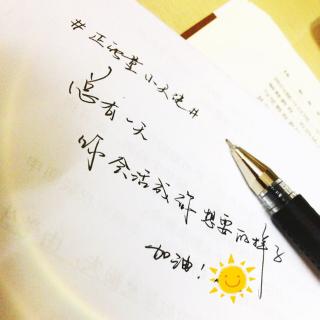 #正能量小天使#
总有一天
你会活成你想要的样子
加油!